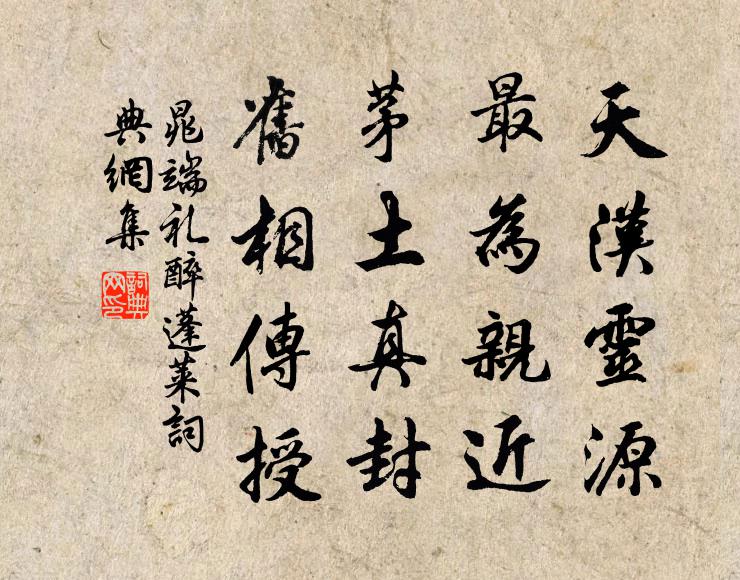 天漢靈源
最為親近
茅土真封
舊相傳授
晁端礼醉蓬萊詞
典網集
詞典網印